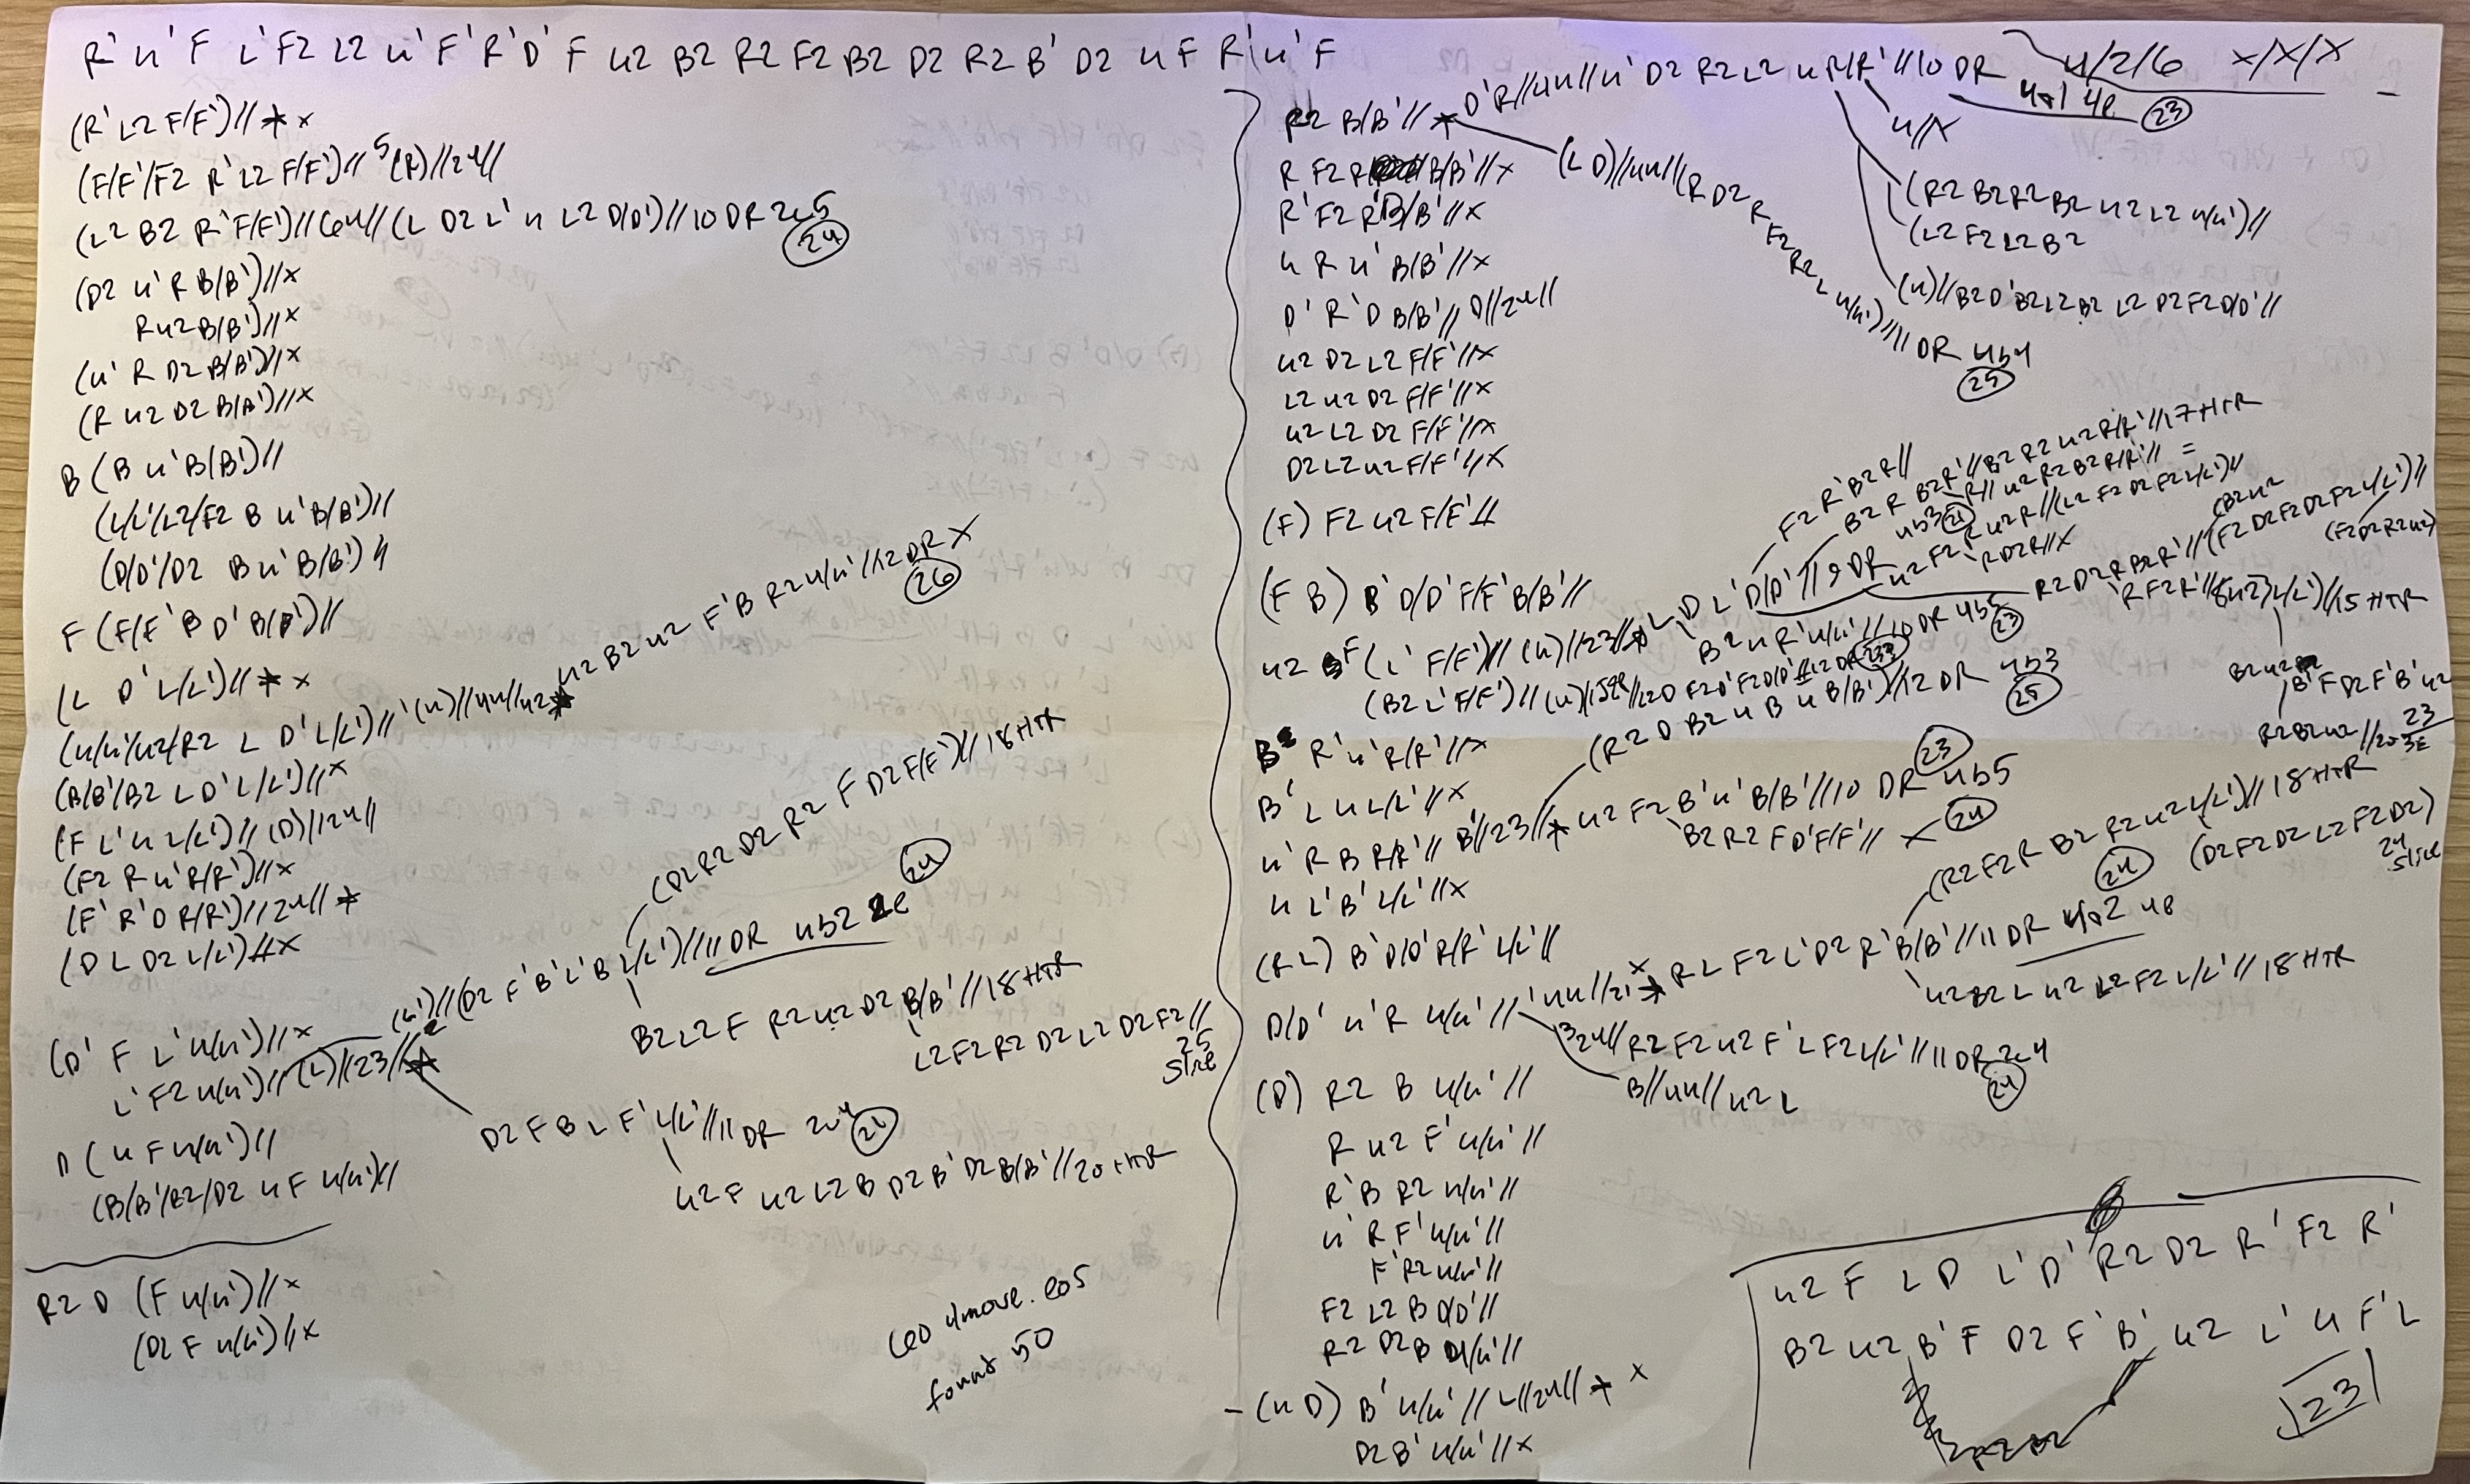 R' U' F L' F2 L2 U' F' R' D' F U2 B2 R2 F2 B2 D2 R2 B' D2 U F R' U' F
(R' L2 F/F')// * x
(F/F'/F2 R' L2 F/F')// 5(R)//24//
(L2 B2 R' F/F')//64//(L D2 L' U L2 D/D')//10 DR 2c5
(24)
(D2 U' R B/B')//x
R U2 B/B')//x
(U' R D2 B/B')//x
(R U2 D2 B/B')//x
B (B U' B/B')//
(L/L'/L2/F2 B U' B/B')//
(D/D'/D2 B U' B/B')//
F (F/F' B D' B/B')//
(L D' L/L')// * x
(U/U'/U2/R2 L D' L/L')//'(U)//44//U2 * U2 B2 U2 F' B R2 U/U'//12 DR X
(26)
(B/B'/B2 L D' L/L')//x
(F L' U L/L')//(D)//24//
(F2 R U' R/R')//x
(F' R' D R/R')//24// *
(D L D2 L/L')//x
(D' F L' U/U')//x
L' F2 U/U')//(L)//23//*
(U')//(D2 F' B' L' B L/L')//11 DR 4b2 2e (24)
(D2 R2 D2 R2 F D2 F/F')//18 HTR
B2 L2 F R2 U2 D2 B/B'//18 HTR
L2 F2 R2 D2 L2 D2 F2//
25
slice
D2 F B L F' L/L'//11 DR 2c4
U2 F U2 L2 B D2 B' D2 B/B'//20 HTR
D (U F U/U')//
(B/B'/B2/D2 U F U/U')//
R2 D (F U/U')//x
(D2 F U/U')//x
Leo 4move. eos
found 50
R2 B/B'// * D' R//44//U' D2 R2 L2 U R/R'//10 DR 4/2/6 x/x/x
4a1 4e (23)
4//x
(R2 B2 R2 B2 U2 L2 U/U')//
(L2 F2 L2 B2
(U)//B2 D' B2 L2 B2 L2 D2 F2 D/D'//
(L D)//44//(R D2 R F2 R2 L U/U')//11 DR 4b4
(25)
R F2 R B/B'//x
R' F2 R' B/B'//x
U R U' B/B'//x
D' R' D B/B'// D//24//
U2 D2 L2 F/F'//x
L2 U2 D2 F/F'//x
U2 L2 D2 F/F'//x
D2 L2 U2 F/F'//x
(F) F2 U2 F/F'//
(F B) B' D/D' F/F' B/B'//
U2 F (L' F/F')//(U)//23//* L D L' D/D'//9 DR
4b3 (21)
F2 R' B2 R//
B2 R B2 R'//B2 R2 U2 R/R'//17 HTR
R//U2 R2 B2 R/R'// =
U2 F2 R U2 R//(L2 F2 D2 F2 L/L')//
R D2 R//x
R2 D2 R B2 R'//(F2 D2 F2 D2 F2 L/L')//
(B2 U2
(F2 D2 R2 U2)
R' F2 R'//(8U2) L/L')//15 HTR
B2 U2
B' F D2 F' B' U2
23
R2 B2 U2//20 3E
B2 U R' U/U'//10 DR 4b5
(23)
(B2 L' F/F')//(U)//
(R2 D B2 U B U B/B')//12 DR 4b3
(25)
B R' U' R/R'//x
B' L U L/L'//x
U' R B R/R'// B'//23//* U2 F2 B' U' B/B'//10 DR 4b5
(23)
B2 R2 F D' F/F'// x (24)
U L' B' L/L'//x
(R L) B' D/D' R/R' L/L'//
D/D' U' R U/U'//'44//21 * R L F2 L' D2 R' B/B'//11 DR 4a2 4e
(24)
(R2 F2 R B2 R2 U2 L/L')//18 HTR
(D2 F2 D2 L2 F2 D2)
24
slice
U2 B2 L U2 L2 F2 L/L'//18 HTR
324//R2 F2 U2 F' L F2 L/L'//11 DR 2c4
(24)
B//44//U2 L
(D) R2 B U/U'//
R U2 F' U/U'//
R' B R2 U/U'//
U' R F' U/U'//
F' R2 U/U'//
F2 L2 B D/D'//
R2 D2 B U/U'//
- (U D) B' U/U'// L//24// * x
D2 B' U/U'//x
U2 F L D L' D' R2 D2 R' F2 R'
B2 U2 B' F D2 F' B' U2 L' U F' L
23